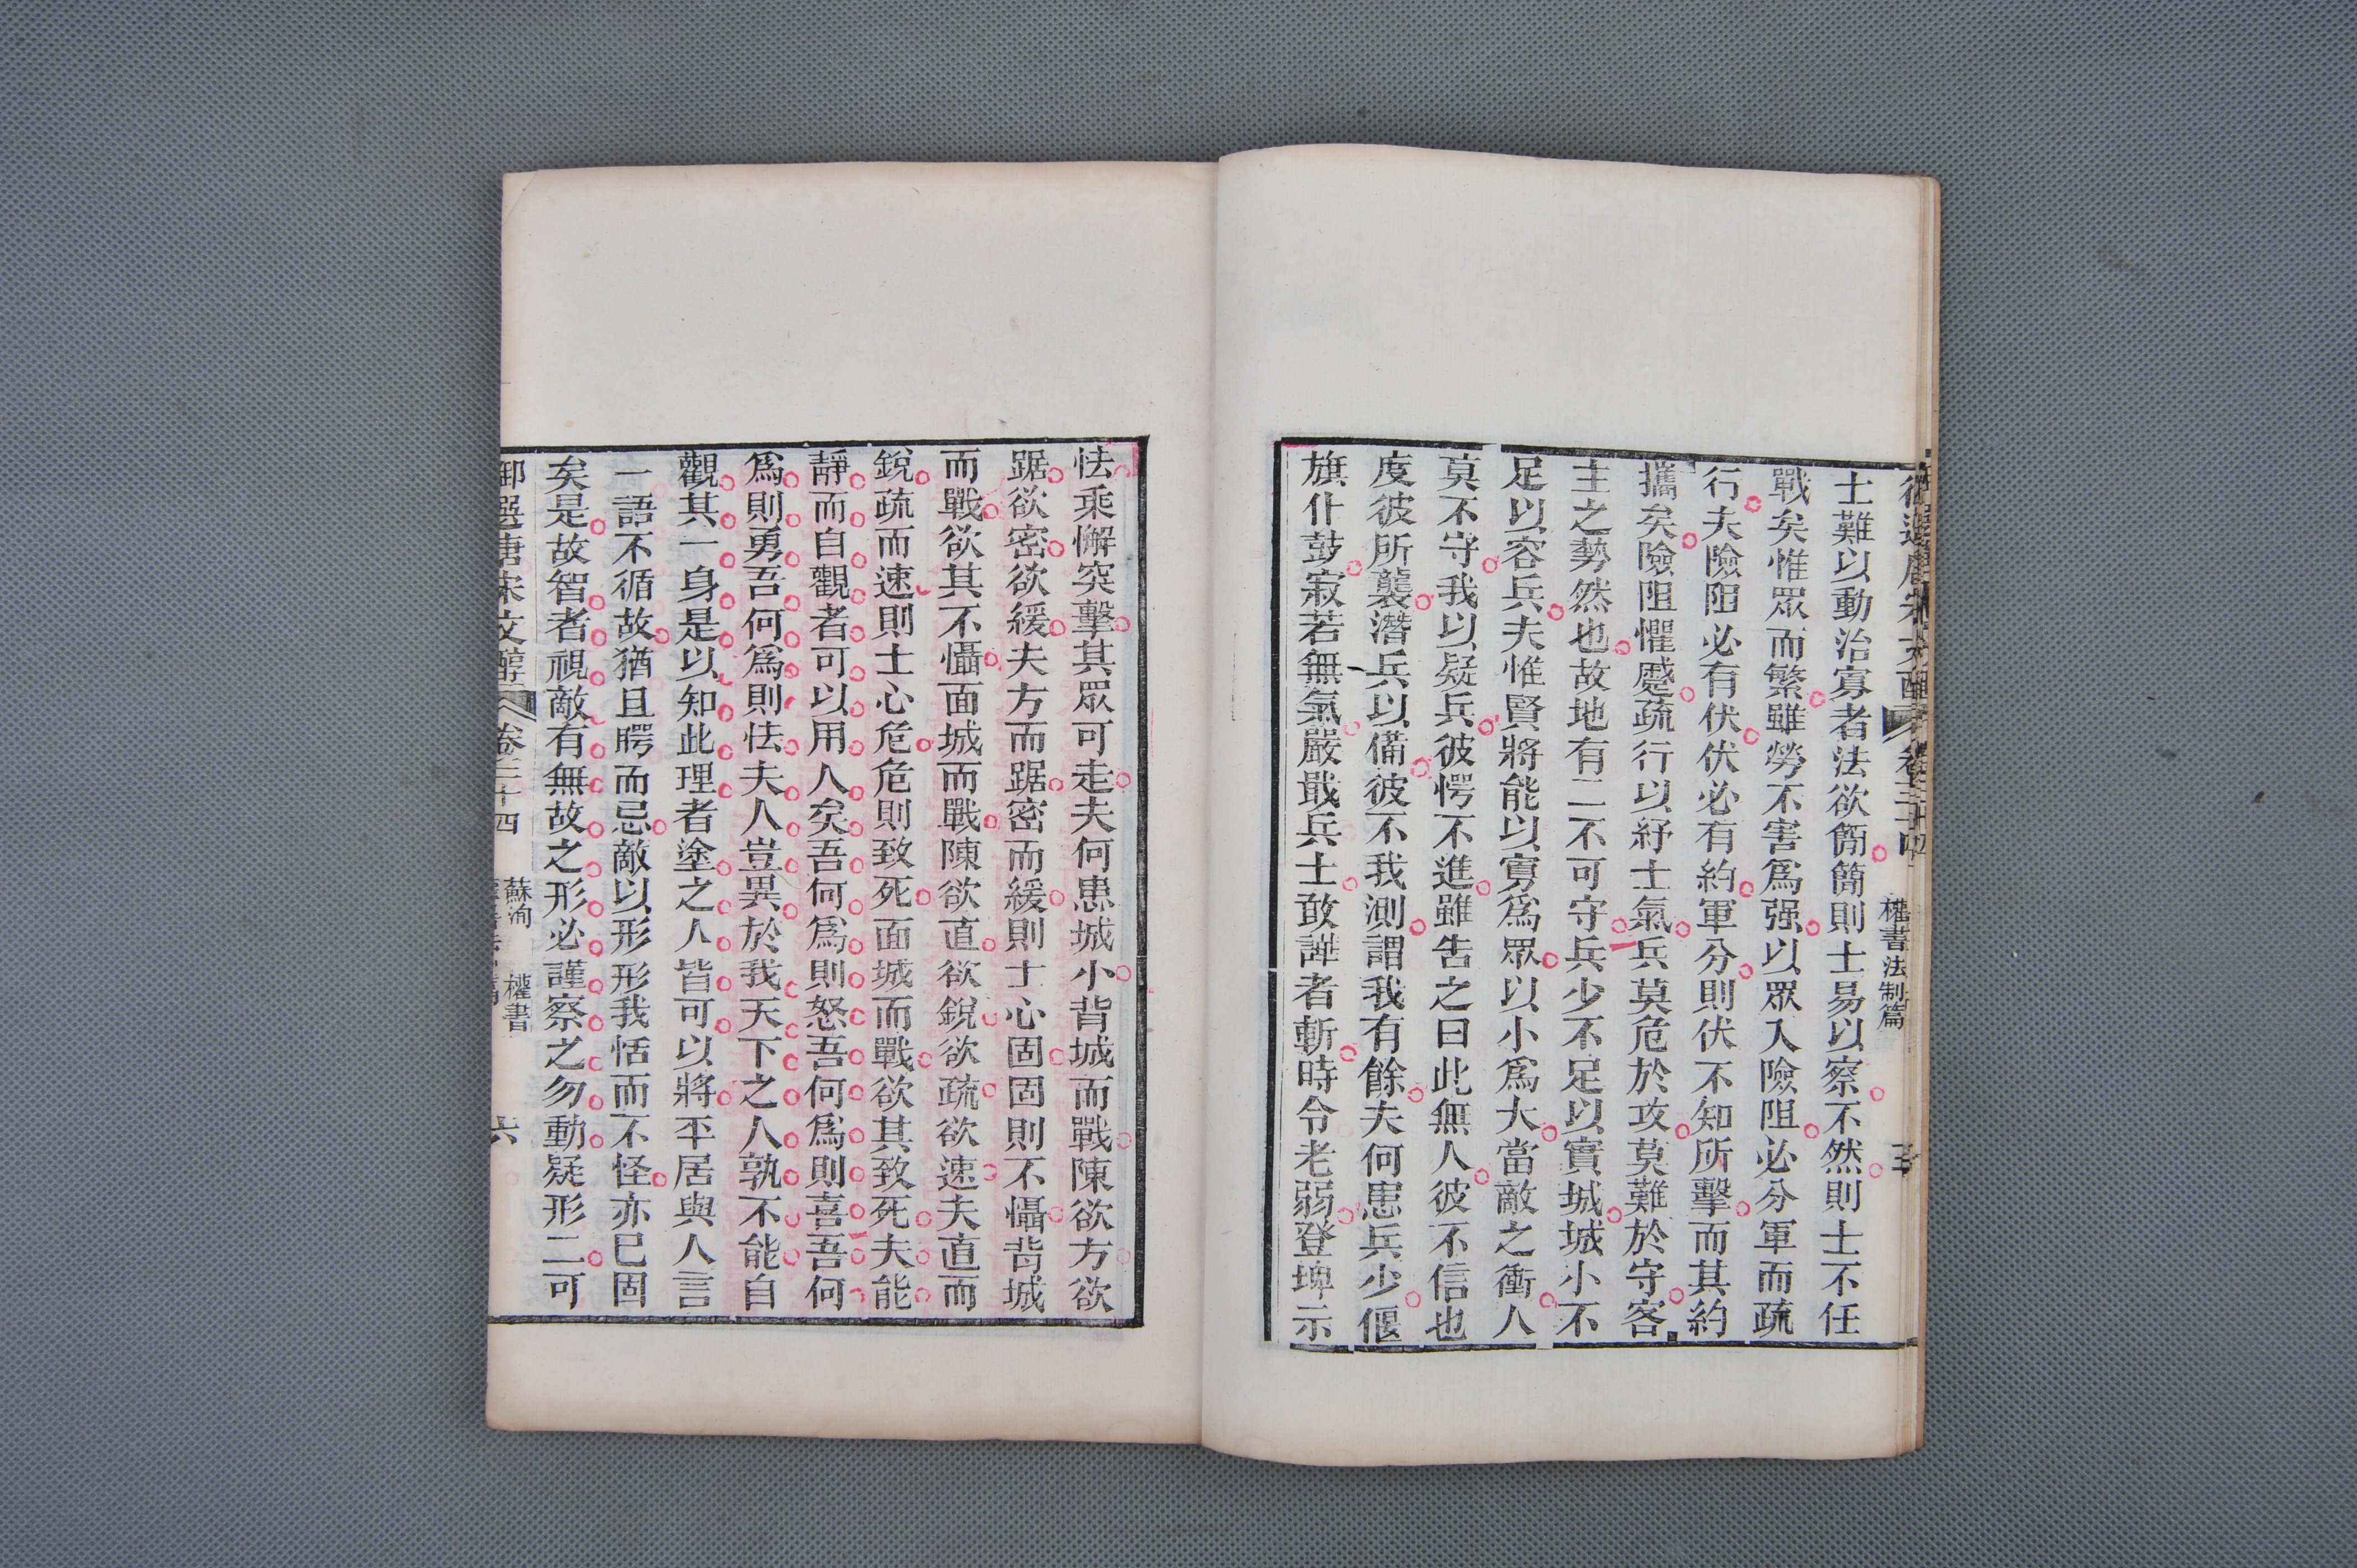 士難以動治寡者法欲簡簡則士易以察不然則士不任
戰矣惟眾而繁雖勞不害爲强以眾入險阻必分軍而疏
行夫險阻必有伏伏必有約軍分則伏不知所擊而其約
攜矣險阻懼蹙疏行以紓士氣兵莫危於攻莫難於守客
主之勢然也故地有二不可守兵少不足以實城城小不
足以容兵夫惟賢將能以寡爲眾以小爲大當敵之衝人
莫不守我以疑兵彼愕不進雖告之曰此無人彼不信也
度彼所襲潛兵以備彼不我測謂我有餘夫何患兵少偃
旗仆鼓寂若無氣嚴戢兵士敢譁者斬時令老弱登埤示
權書法制篇
怯乘懈突擊其眾可走夫何患城小背城而戰陳欲方欲
踞欲密欲緩夫方而踞密而緩則士心固固則不懾背城
而戰欲其不懾面城而戰陳欲直欲銳欲疏欲速夫直而
銳疏而速則士心危危則致死面城而戰欲其致死夫能
靜而自觀者可以用人矣吾何爲則怒吾何爲則喜吾何
爲則勇吾何爲則怯夫人豈異於我天下之人孰不能自
觀其一身是以知此理者塗之人皆可以將平居與人言
一語不循故猶且愕而忌敵以形形我恬而不怪亦已固
矣是故智者視敵有無故之形必謹察之勿動疑形二可
御選唐宋文醇
卷三十四
蘇洵 權書
六